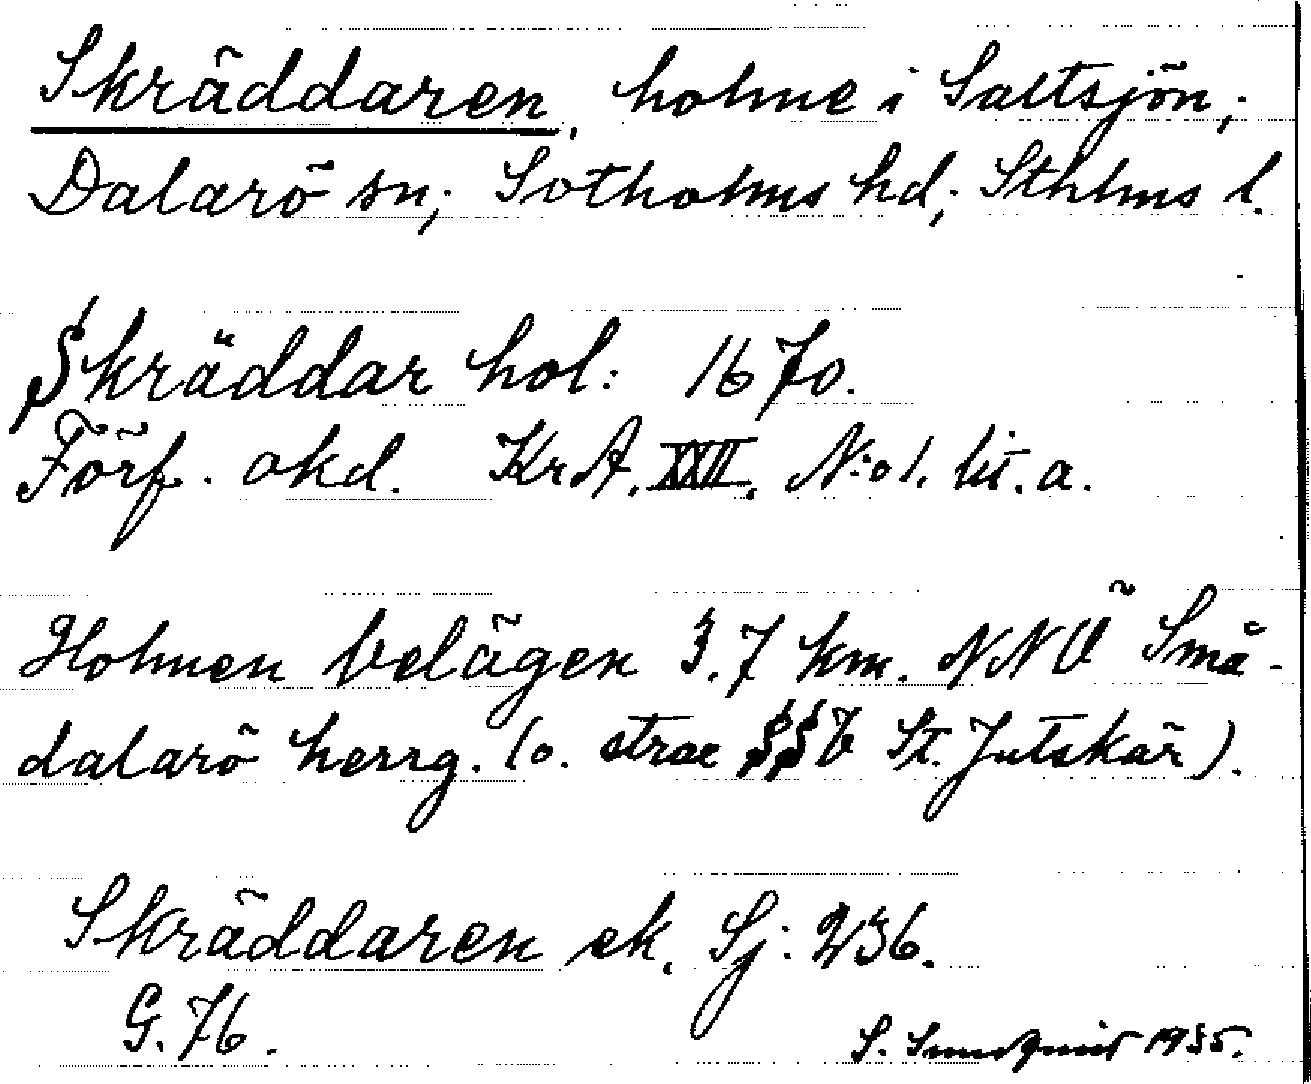 Skräddaren, holme i Saltsjön;
Dalarö sn; Sotholms hd; Sthlms l.
Skräddar hol: 1670.
Förf. okd. KrA. XXII. N:o 1. lit. a.
Holmen belägen 3.7 km. NNÖ Små-
dalarö herrg. (o. strax SSV St. Jutskär).
Skräddaren ek. Sj: 236.
G. 76.
S. Sundqvist 1935.